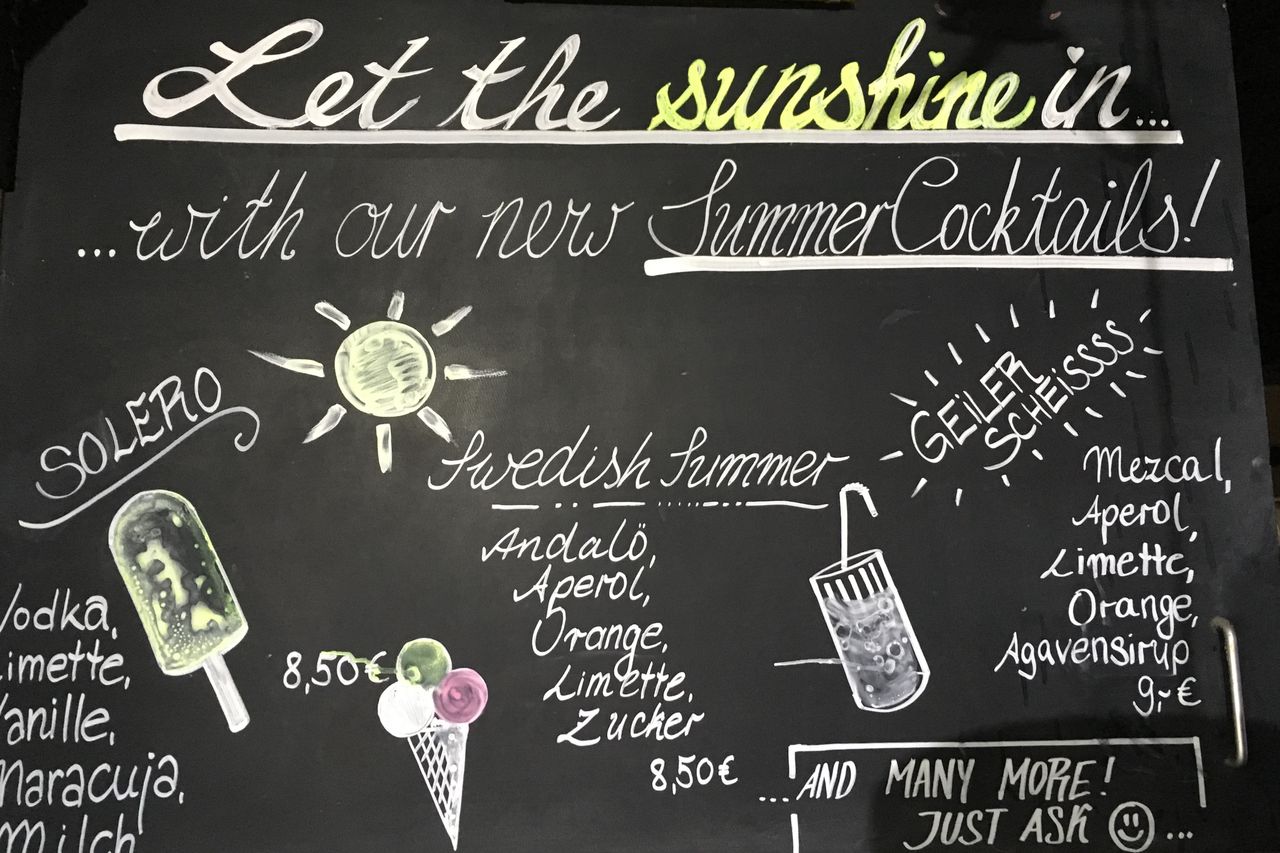 Let the sunshine in...
...with our new Summer Cocktails!
SOLERO
Vodka,
Limette,
Vanille,
Maracuja,
Milch
8,50€
Swedish Summer
Andalö,
Aperol,
Orange,
Limette,
Zucker
8,50€
GEILER
SCHEISSSS
Mezcal,
Aperol,
Limette,
Orange,
Agavensirup
9,-€
...AND MANY MORE!
JUST ASK ☺...